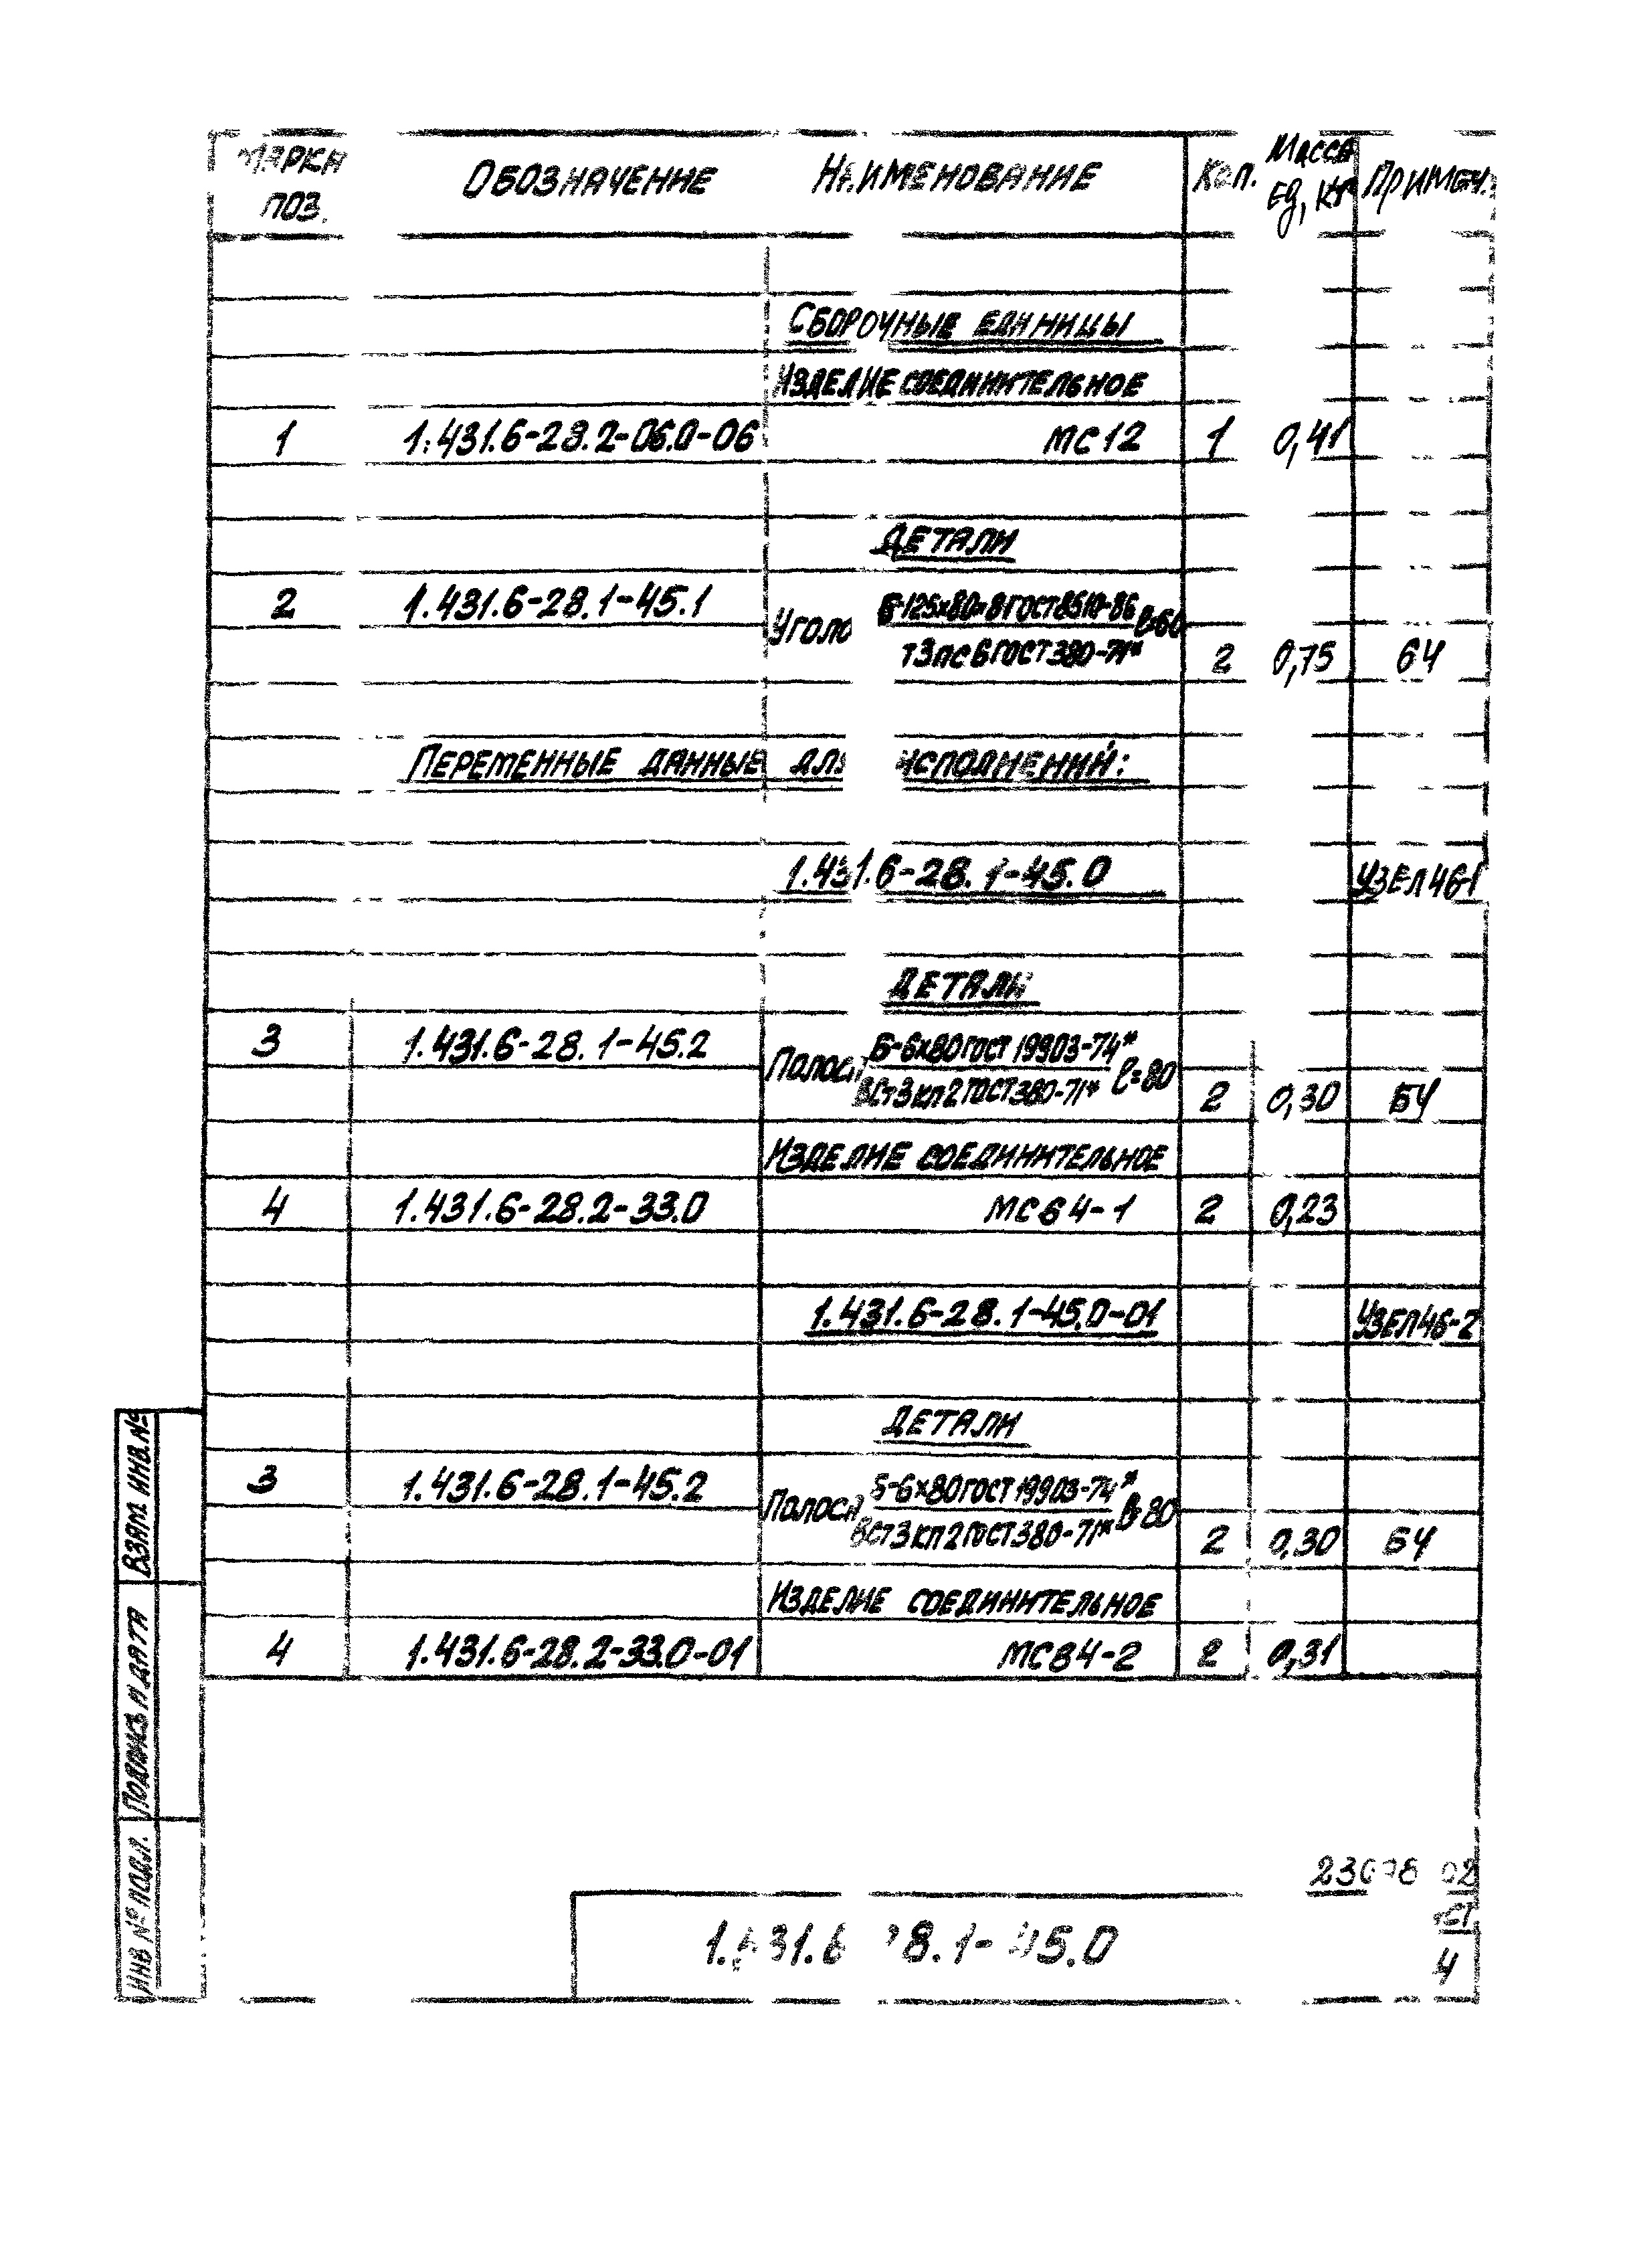 МАРКА ПОЗ. ОБОЗНАЧЕНИЕ НАИМЕНОВАНИЕ Кол. Масса ед, кг Примеч.
СБОРОЧНЫЕ ЕДИНИЦЫ
ИЗДЕЛИЕ СОЕДИНИТЕЛЬНОЕ
1 1.431.6-28.2-06.0-06 МС12 1 0,41
ДЕТАЛИ
2 1.431.6-28.1-45.1 Б-125х80х8 ГОСТ 8510-86 ℓ=60
т3пс6 ГОСТ 380-71* 2 0,75 БЧ
ПЕРЕМЕННЫЕ ДАННЫЕ ДЛЯ ИСПОЛНЕНИЙ:
1.431.6-28.1-45.0 УЗЕЛ 46-1
ДЕТАЛИ
3 1.431.6-28.1-45.2 Полоса Б-6х80 ГОСТ 19903-74* ℓ=80
ВСт3кп2 ГОСТ 380-71* 2 0,30 БЧ
ИЗДЕЛИЕ СОЕДИНИТЕЛЬНОЕ
4 1.431.6-28.2-33.0 2 0,23
1.431.6-28.1-45.0-01 УЗЕЛ 46-2
ДЕТАЛИ
3 1.431.6-28.1-45.2 Полоса Б-6х80 ГОСТ 19903-74* ℓ=80
ВСт3кп2 ГОСТ 380-71* 2 0,30 БЧ
ИЗДЕЛИЕ СОЕДИНИТЕЛЬНОЕ
4 1.431.6-28.2-33.0-01 2 0,31
ВЗАМ. ИНВ. №
ПОДПИСЬ И ДАТА
ИНВ № ПОДЛ.
1.431.6-28.1-45.0
4